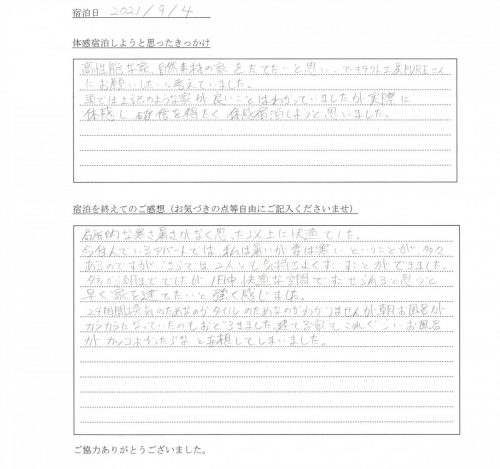 宿泊日 2021/9/4
体感宿泊しようと思ったきっかけ
高性能な家、自然素材の家をたてたいと思い、アーキテクト工房PUREさん
にお願いしたいと考えていました。
頭では上記のような家が良いことはわかっていましたが実際に
体感し確信を得たく体感宿泊しようと思いました。
宿泊を終えてのご感想（お気づきの点等自由にご記入くださいませ）
局所的な寒さ暑さがなく思った以上に快適でした。
今住んでいるアパートでは、私は暑いが妻は寒いということが多々
あるのですが、こちらでは2人とも気持ちよくすごすことができました。
夕方から朝まででしたが1日中快適な空間ですごせられると思うと
早く家を建てたいと強く感じました。
24時間換気のためなのかタイルのためなのかわかりませんが朝お風呂が
カラカラになっていたのもおどろきました。建てる家でこれぐらいお風呂
がカッコよかったらなと妄想してしまいました。
ご協力ありがとうございました。